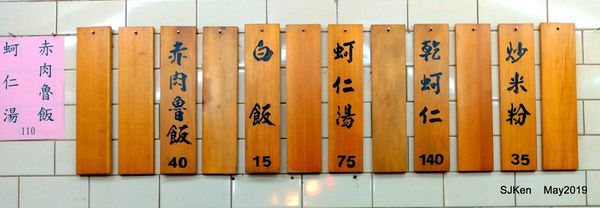 赤肉魯飯
蚵仁湯
110
赤肉魯飯
40
白飯
15
蚵仁湯
75
乾蚵仁
140
炒米粉
35
SJKen May2019